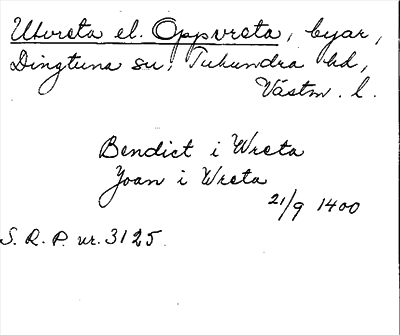 Utvreta el. Oppvreta, byar,
Dingtuna sn, Tuhundra hd,
Västm. l.
Bendict i Wreta
Joan i Wreta
21/9 1400
S. R. P. nr. 3125.